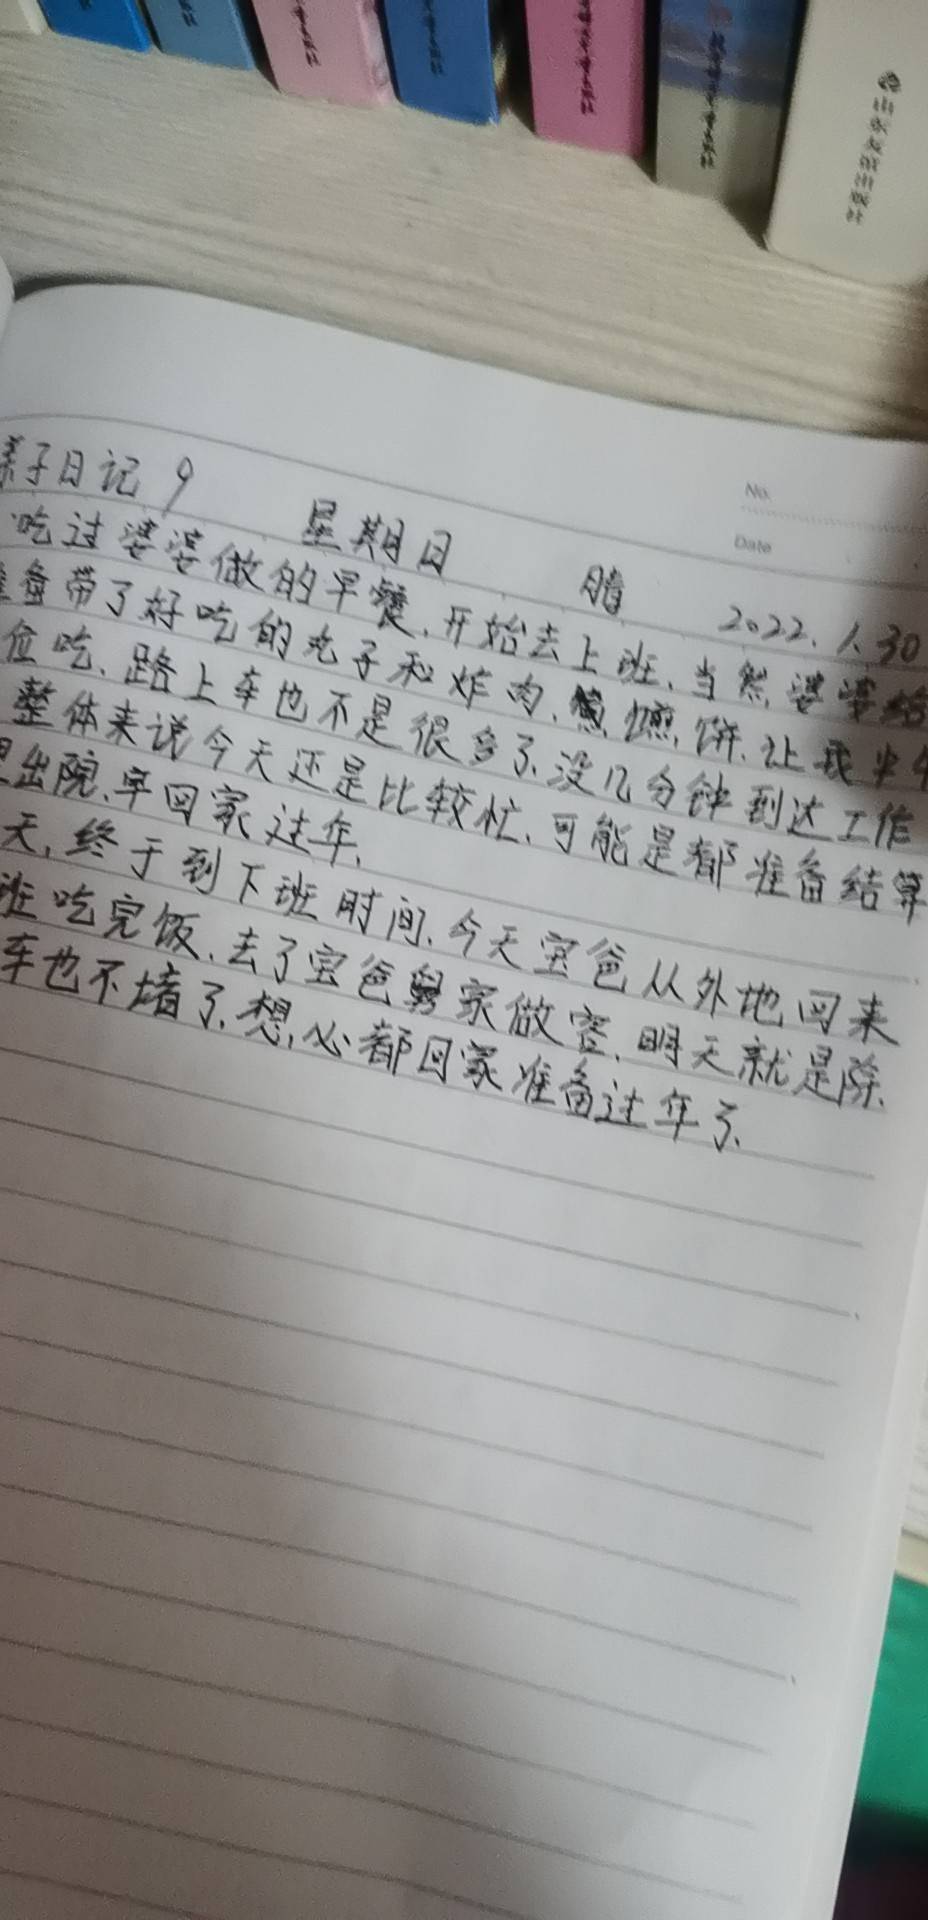 山东友谊出版社
No.
Date
亲子日记9 星期日 晴 2022.1.30
吃过婆婆做的早餐.开始去上班.当然婆婆给
准备带了好吃的丸子和炸肉.煎饼.让我中午
位吃.路上车也不是很多了.没几分钟到达工作
整体来说今天还是比较忙.可能是都准备结算
出院.早回家过年.
天.终于到下班时间.今天宝爸从外地回来
班吃完饭.去了宝爸舅家做客.明天就是除.
车也不堵了.想心都回家准备过年了.